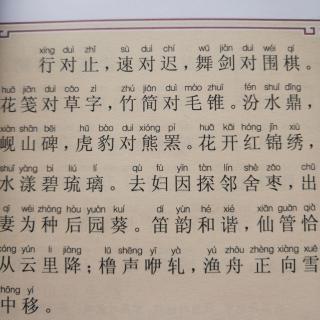 xíng duì zhǐ sù duì chí wǔ jiàn duì wéi qí
行对止，速对迟，舞剑对围棋。
huā jiān duì cǎo zì zhú jiǎn duì máo zhuī fén shuǐ dǐng
花笺对草字，竹简对毛锥。汾水鼎，
xiàn shān bēi hǔ bào duì xióng pí huā kāi hóng jǐn xiù
岘山碑，虎豹对熊罴。花开红锦绣，
shuǐ yàng bì liú lí qù fù yīn tàn lín shè zǎo chū
水漾碧琉璃。去妇因探邻舍枣，出
qī wéi zhòng hòu yuán kuí dí yùn hé xié xiān guǎn qià
妻为种后园葵。笛韵和谐，仙管恰
cóng yún lǐ jiàng lǔ shēng yī yà yú zhōu zhèng xiàng xuě
从云里降；橹声咿轧，渔舟正向雪
zhōng yí
中移。